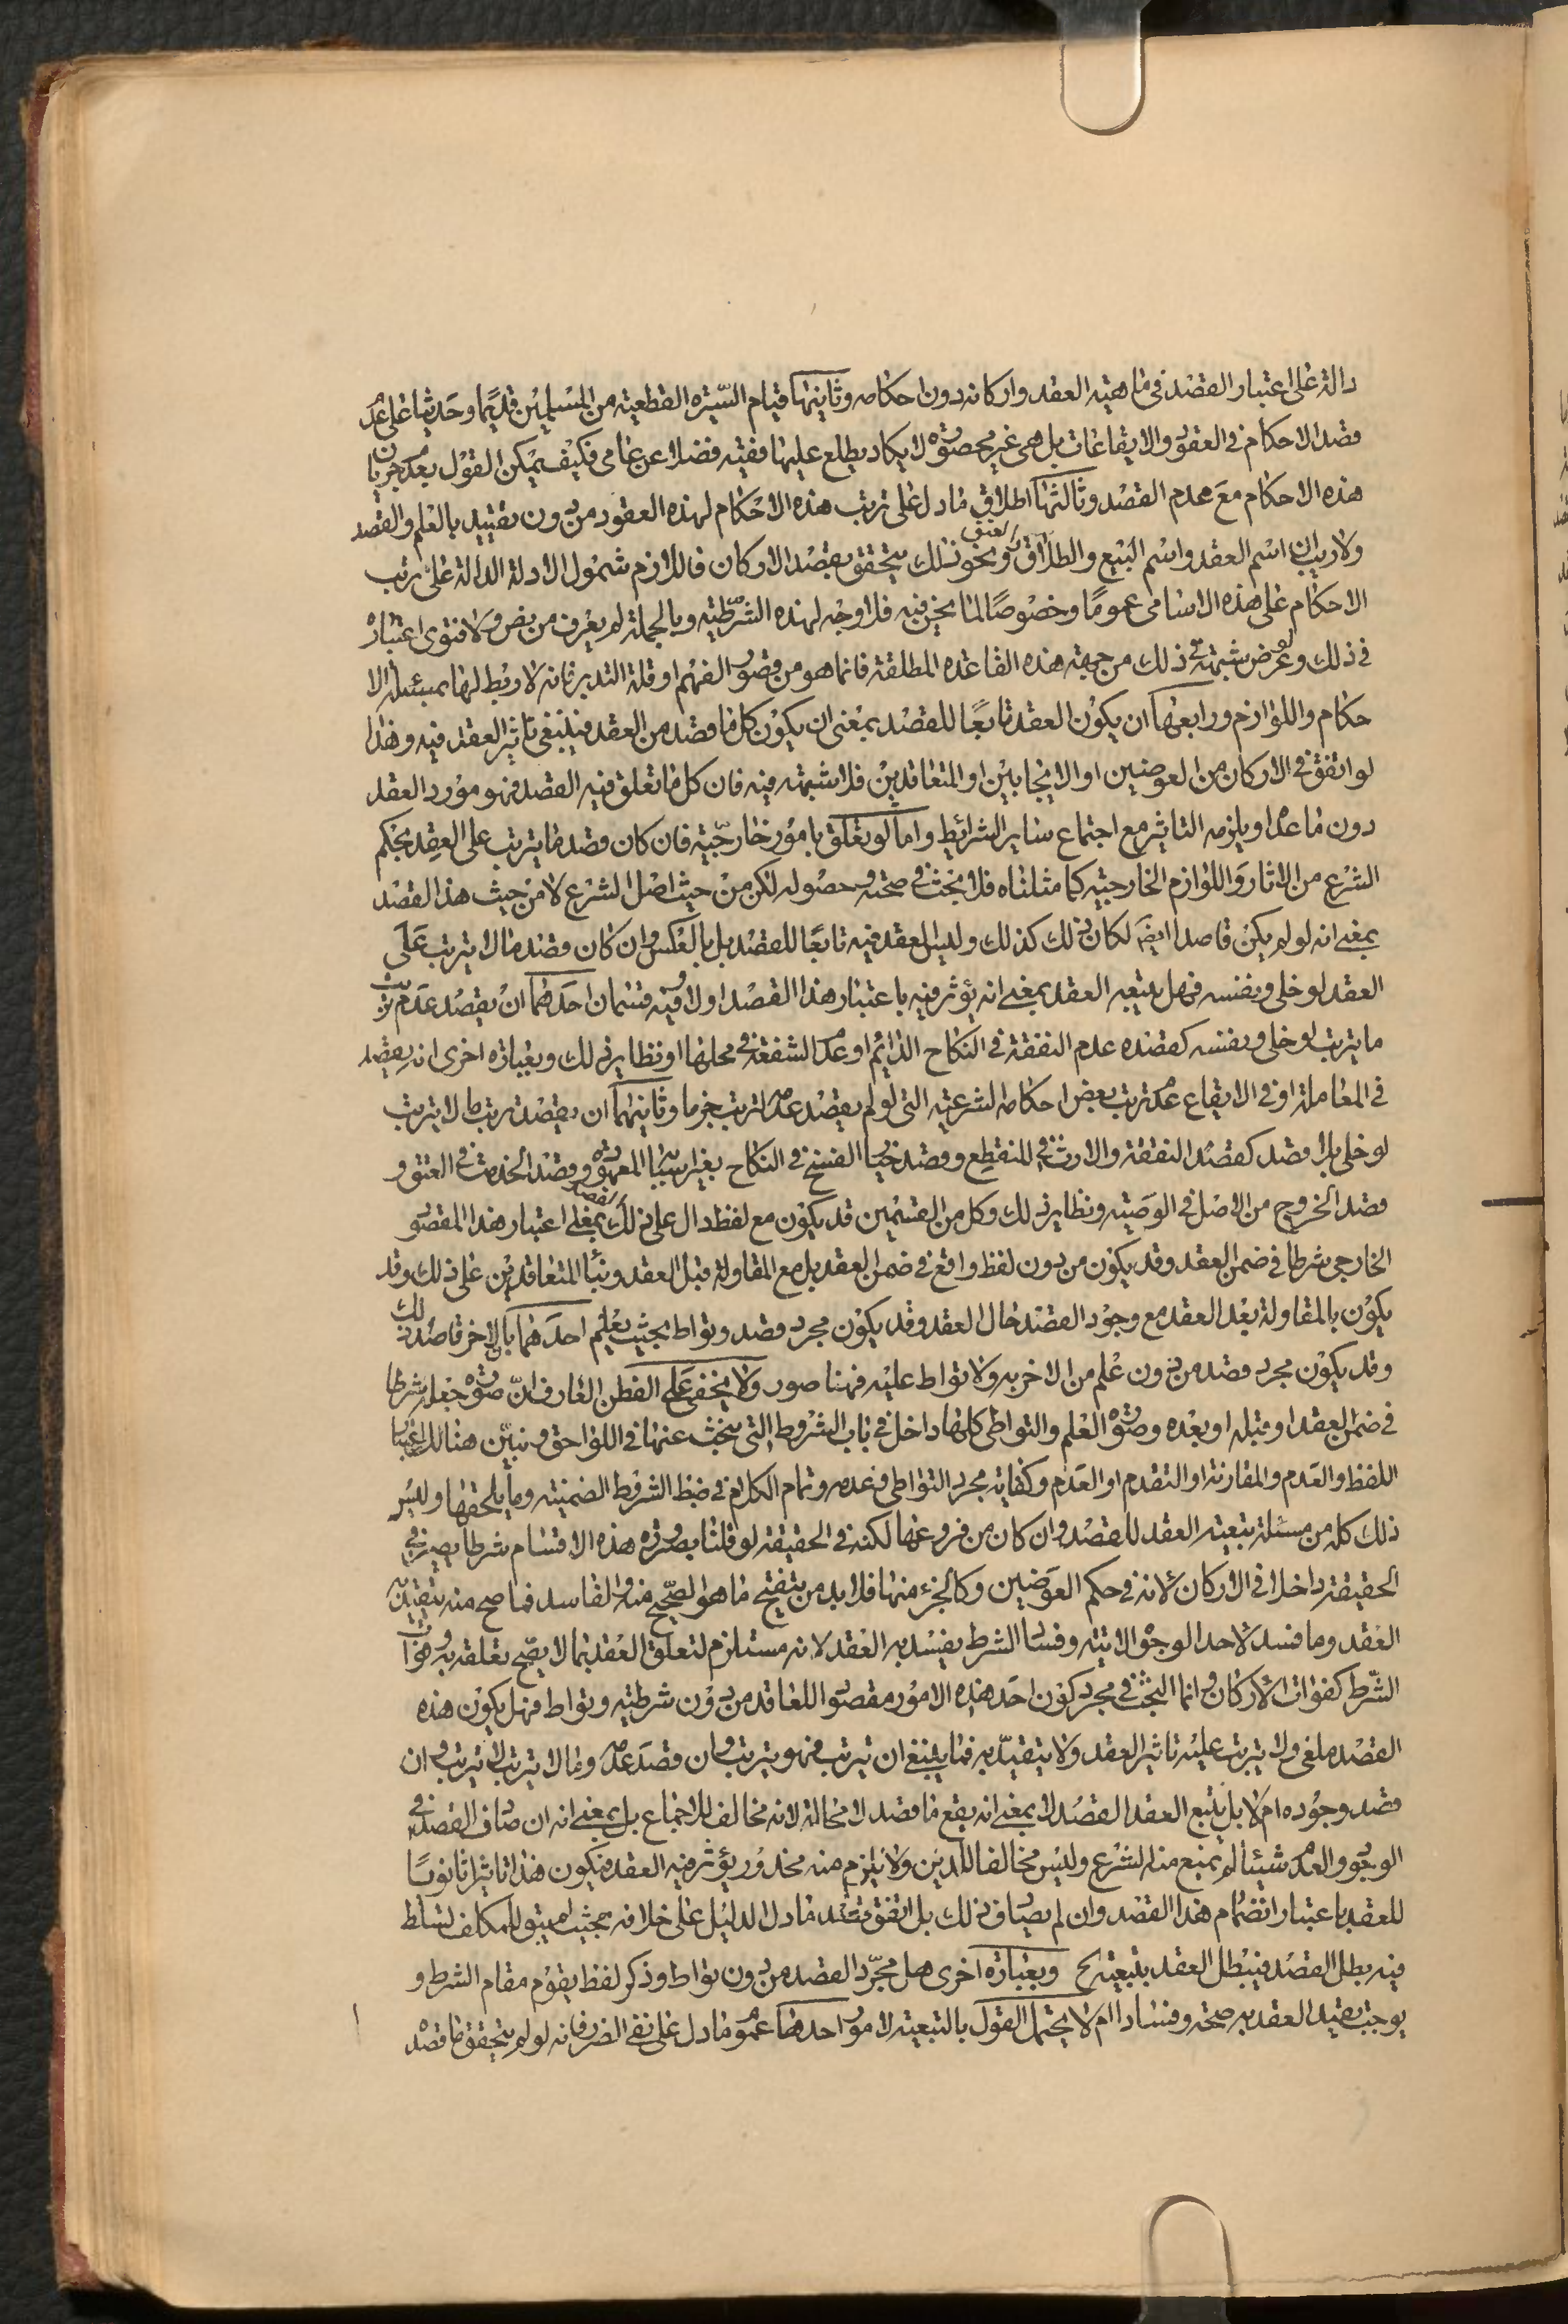 دالة على اعتبار القصد فى ماهية العقد واركانه دون احكامه وثانيها قيام السيرة القطعية من المسلمين قديما وحديثا على عدم
قصد الاحكام فى العقود والايقاعات بل هى غير محصورة لا يكاد يطلع عليها فقيه فضلا عن عامى فكيف يمكن القول بعدم جريان
هذه الاحكام مع عدم القصد وثالثها اطلاق ما دل على ترتب هذه الاحكام لهذه العقود من دون تقييد بالعلم والقصد
ولا ريب ان اسم العقد واسم البيع والطلاق والعتق ونحو ذلك يتحقق بقصد الاركان فاللازم شمول الادلة الدالة على ترتب
الاحكام على هذه الاسامى عموما وخصوصا لما نحن فيه فلا وجه لهذه الشرطية وبالجملة لم يعرف من نص ولا فتوى اعتباره
فى ذلك ولو عرض شبهة فى ذلك من جهة هذه القاعدة المطلقة فانما هو من قصور الفهم او قلة التدبر فانه لا ربط لها بمسئلة الا
حكام واللوازم ورابعها ان يكون العقد تابعا للقصد بمعنى ان يكون كل ما قصد من العقد فينبغى تاثير العقد فيه وهذا
لو اتفق فى الاركان من العوضين او الايجابين او المتعاقدين فلا شبهة فيه فان كل ما تعلق فيه القصد فهو مورد العقد
دون ما عداه ويلزمه التاثير مع اجتماع ساير الشرائط واما لو تعلق بامور خارجية فان كان قصد ما يترتب على العقد بحكم
الشرع من الاثار واللوازم الخارجية كما مثلناه فلا بحث فى صحته وحصوله لكن من حيث اصل الشرع لا من حيث هذا القصد
بمعنى انه لو لم يكن قاصدا ايضا لكان ذلك كذلك وليس العقد فيه تابعا للقصد بل بالعكس وان كان قصد ما لا يترتب على
العقد لو خلى ونفسه فهل يتبعه العقد بمعنى انه يؤثر فيه باعتبار هذا القصد اولا وفيه قسمان احدهما ان يقصد عدم ترتب
ما يترتب لو خلى ونفسه كقصده عدم النفقة فى النكاح الدائم او عدم الشفعة فى محلها او نظاير ذلك وبعبارة اخرى انه يقصد
فى المعاملة او فى الايقاع عدم ترتب بعض احكامه الشرعية التى لو لم يقصد عدمه لترتب جزما وثانيهما ان يقصد ترتب ما لا يترتب
لو خلى بلا قصد كقصد النفقة والارث فى المنقطع وقصد خيار الفسخ فى النكاح بغير اسبابه المعهودة وقصد الخدمة فى العتق و
قصد الخروج من الاصل فى الوصية ونظاير ذلك وكل من القسمين قد يكون مع لفظ دال على ذلك القصد بمعنى اعتبار هذا المقصود
الخارجى شرطا فى ضمن العقد وقد يكون من دون لفظ واقع فى ضمن العقد بل مع المقاولة قبل العقد وبناء المتعاقدين على ذلك وقد
يكون بالمقاولة بعد العقد مع وجود القصد حال العقد وقد يكون مجرد قصد وتواط بحيث يعلم احدهما بان الاخر قاصد ذلك
وقد يكون مجرد قصد من دون علم من الاخر به ولا تواط عليه فهنا صور ولا يخفى على الفطن العارف ان صورة جعله شرطا
فى ضمن العقد او قبله او بعده وصورة العلم والتواطى كلها داخل فى باب الشروط التى نبحث عنها فى اللواحق ونبين هنالك اعتبار
اللفظ والعدم والمقارنة او التقدم او العدم وكفاية مجرد التواطى وعدمه وتمام الكلام فى ضبط الشروط الضمنية وما يلحقها وليس
ذلك كله من مسئلة تبعية العقد للقصد وان كان من فروعها لكنه فى الحقيقة لو قلنا بصيرورة هذه الاقسام شرطا يصير فى
الحقيقة داخلا فى الاركان لانه فى حكم العوضين وكالجزء منها فلا بد من تنقيح ما هو الصحيح منه والفاسد فما صح منه يتقيد به
العقد وما فسد لاحد الوجوه الاتية وفساد الشرط يفسد به العقد لانه مستلزم لتعلق العقد بما لا يصح تعلقه به وفوات
الشرط كفوات الاركان وانما البحث فى مجرد كون احد هذه الامور مقصودا للعاقد من دون شرطية وتواط فهل يكون هذه
القصد ملغى ولا يترتب عليه تاثير العقد ولا يتقيد به فما ينبغى ان يترتب فهو يترتب وان قصد عدمه وما لا يترتب لا يترتب وان
قصد وجوده ام لا بل يتبع العقد القصد لا بمعنى انه يقع ما قصد لا محالة لانه مخالف للاجماع بل بمعنى انه ان صادف القصد فى
الوجود والعدم شيئا لم يمنع منه الشرع وليس مخالفا للدين ولا يلزم منه محذور يؤثر فيه العقد فيكون هذا تاثيرا ثانويا
للعقد باعتبار انضمام هذا القصد وان لم يصادف ذلك بل اتفق قصد ما دل الدليل على خلافه بحيث لم يبق للمكلف تسلط
فيه بطل القصد فيبطل العقد بتبعيته ح وبعبارة اخرى هل مجرد القصد من دون تواط وذكر لفظ يقوم مقام الشرط و
يوجب تقييد العقد به صحة وفسادا ام لا يحتمل القول بالتبعية لامور احدها عموم ما دل على نفى الضرر فانه لو لم يتحقق ما قصده